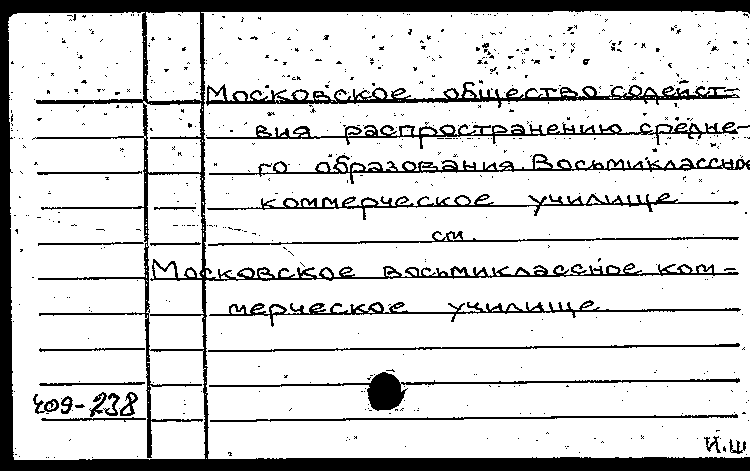 Московское общество содейст=
вия распространению средне-
го образования. Восьмиклассное
коммерческое училище
см.
Московское восьмиклассное ком=
мерческое училище.
409-238
И.Ш